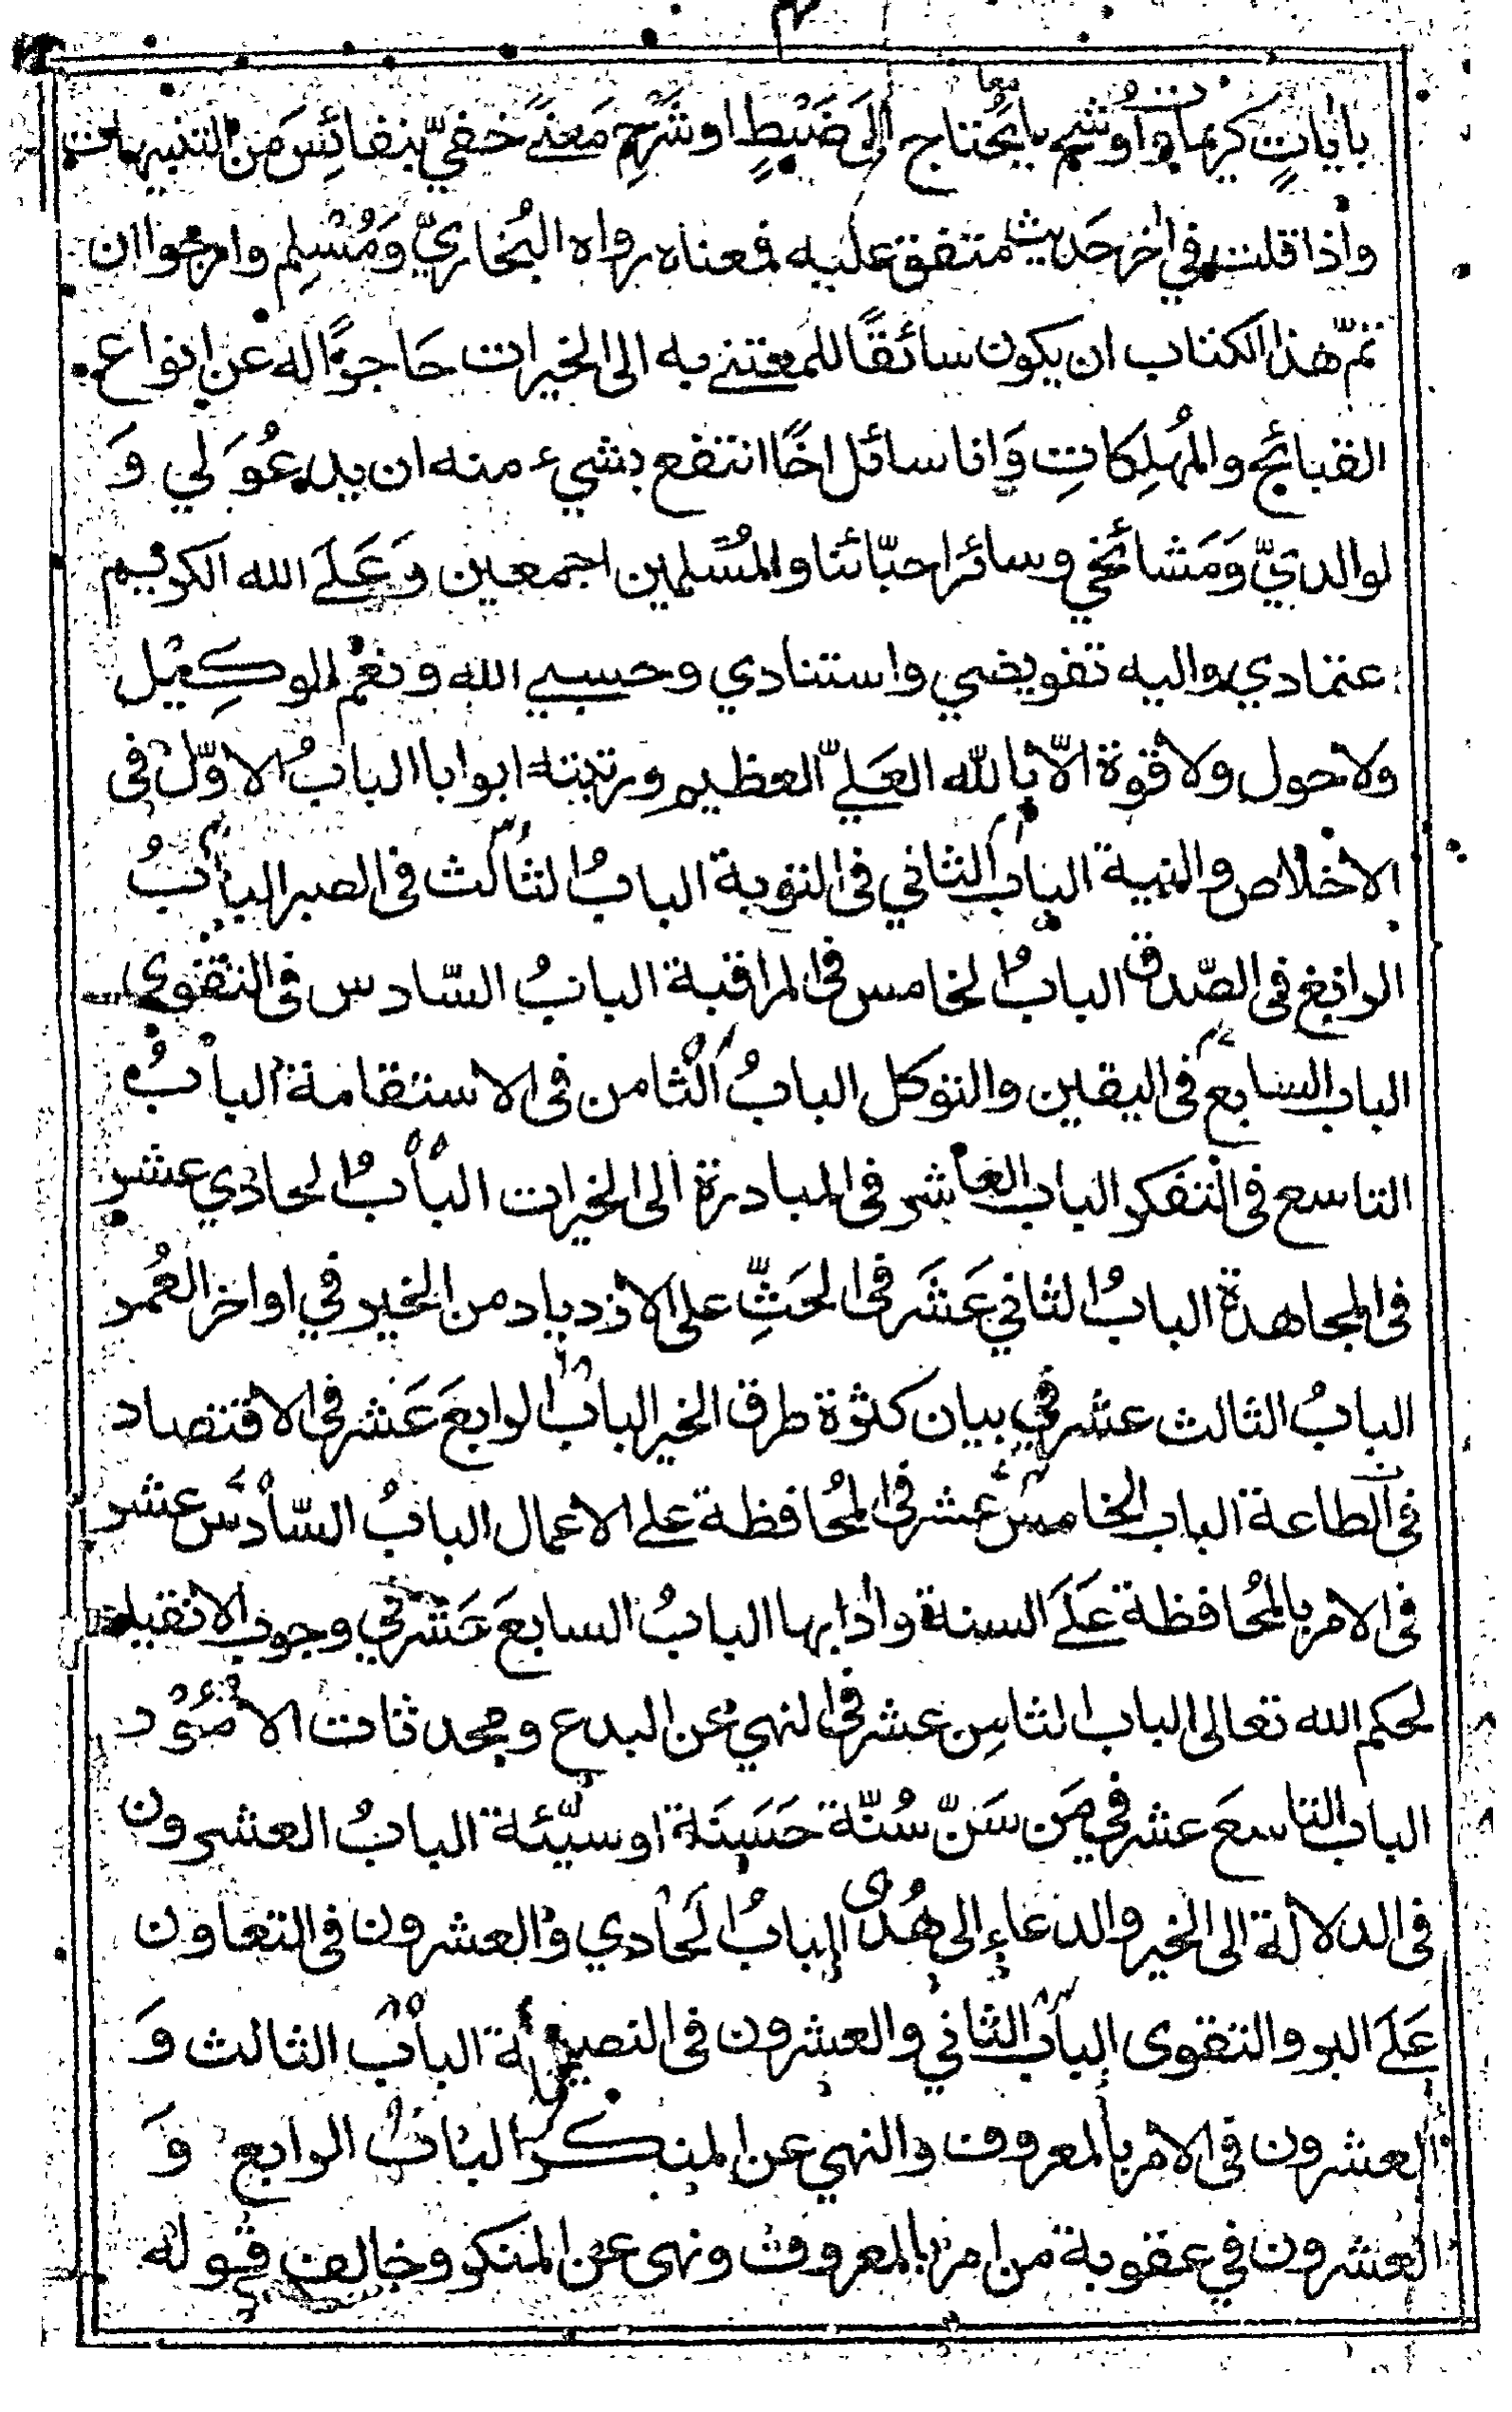 باياتٍ كريمات واوشح ما يحتاج الى ضَبْطٍ او شَرْحِ مَعنًى خفيّ بنفائِسَ مَن التنبيهات
واذا قلت في اخر حَديث متفق عليه فمعناه رواه البُخاريّ وَمُسْلِم وارجوا ان
تمّ هذا الكتاب ان يكون سائقًا للمعتني به الى الخيرات حَاجزًا له عن انواع
القبائح والمُهلِكاتِ وَانا سائل اخًا انتفع بشيء منه ان يدعُوَ لي وَ
لوالديّ وَمَشائخي وسائر احبّائنا والمُسْلمين اجمعين وَعَلَى الله الكريم
عتمادي واليه تفويضي واستنادي وحسبي الله ونعم الوكِيل
ولا حول ولا قوة الّا بالله العَليّ العظيم ورتبته ابوابا البابُ الاوّل فى
الاخلاص والنية الباب الثاني فى التوبة البابُ الثالث فى الصبر البابُ
الرابع فى الصّدق البابُ الخامس فى المراقبة البابُ السّادس فى التقوى
الباب السابع فى اليقين والتوكل البابُ الثامن فى الاستقامة البابُ
التاسع فى التفكر الباب العاشر فى المبادرة الى الخيرات البابُ الحادي عشر
فى المجاهدة البابُ الثاني عَشَر فى الحَثِّ على الازدياد من الخير في اواخر العُمر
البابُ الثالث عشر في بيان كثرة طرق الخير البابُ الرابعَ عَشر فى الاقتصاد
فى الطاعة الباب الخامس عشر فى المُحافظة على الاعمال البابُ السّادسَ عشر
فى الامر بالمُحافظة عَلَى السنة وادابها البابُ السابعَ عَشر في وجوب الانقياد
لحكم الله تعالى الباب الثامِن عشر فى النهي عن البدع ومحدثات الامُوُر
الباب التاسعَ عشر في مَن سَنّ سُنّة حَسَنَة او سيّئة البابُ العشرون
فى الدلالة الى الخير والدعاءِ الى هُدًى البابُ الحَادي والعشرون فى التعاون
عَلَى البر والتقوى الباب الثاني والعشرون فى النصيحة البابُ الثالث وَ
العشرون فى الامر بالمعروف والنهي عن المنكر البابُ الرابع وَ
العشرون في عقوبة من امر بالمعروف ونهى عن المنكر وخالف قوله